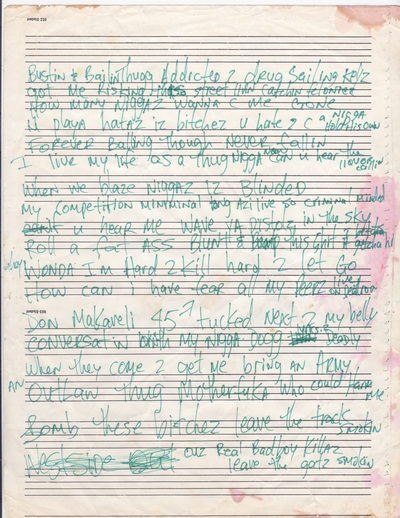 Bustin & Bailin Thugg Addicted 2 drug Sailing
got me Risking this street livin catchin felonies
How many Niggaz wanna c me gone
U playa hataz iz bitchez u hate 2 c a Nigga Hold his own
Forever Balling though Never fallin
I live my life as a Thug Nigga can u hear the callin
When we blaze Niggaz iz Blinded
My competition minimal long az i live so criminal minded
u hear me wave ya pistolz in the sky
Roll a fat ASS Blunt &
WONDA I'm Hard 2 Kill hard 2 let Go
How can i have fear all my
Don Makaveli 45 tucked next 2 my belly
conversatin with my Nigga Dogg Deadly
when they come 2 get me bring an Army
AN Outlaw Thug Motherfuka who could Harm me
Bomb these bitchez leave the track smokin
Westside cuz Real Badboy Killaz
leave the gatz smokin